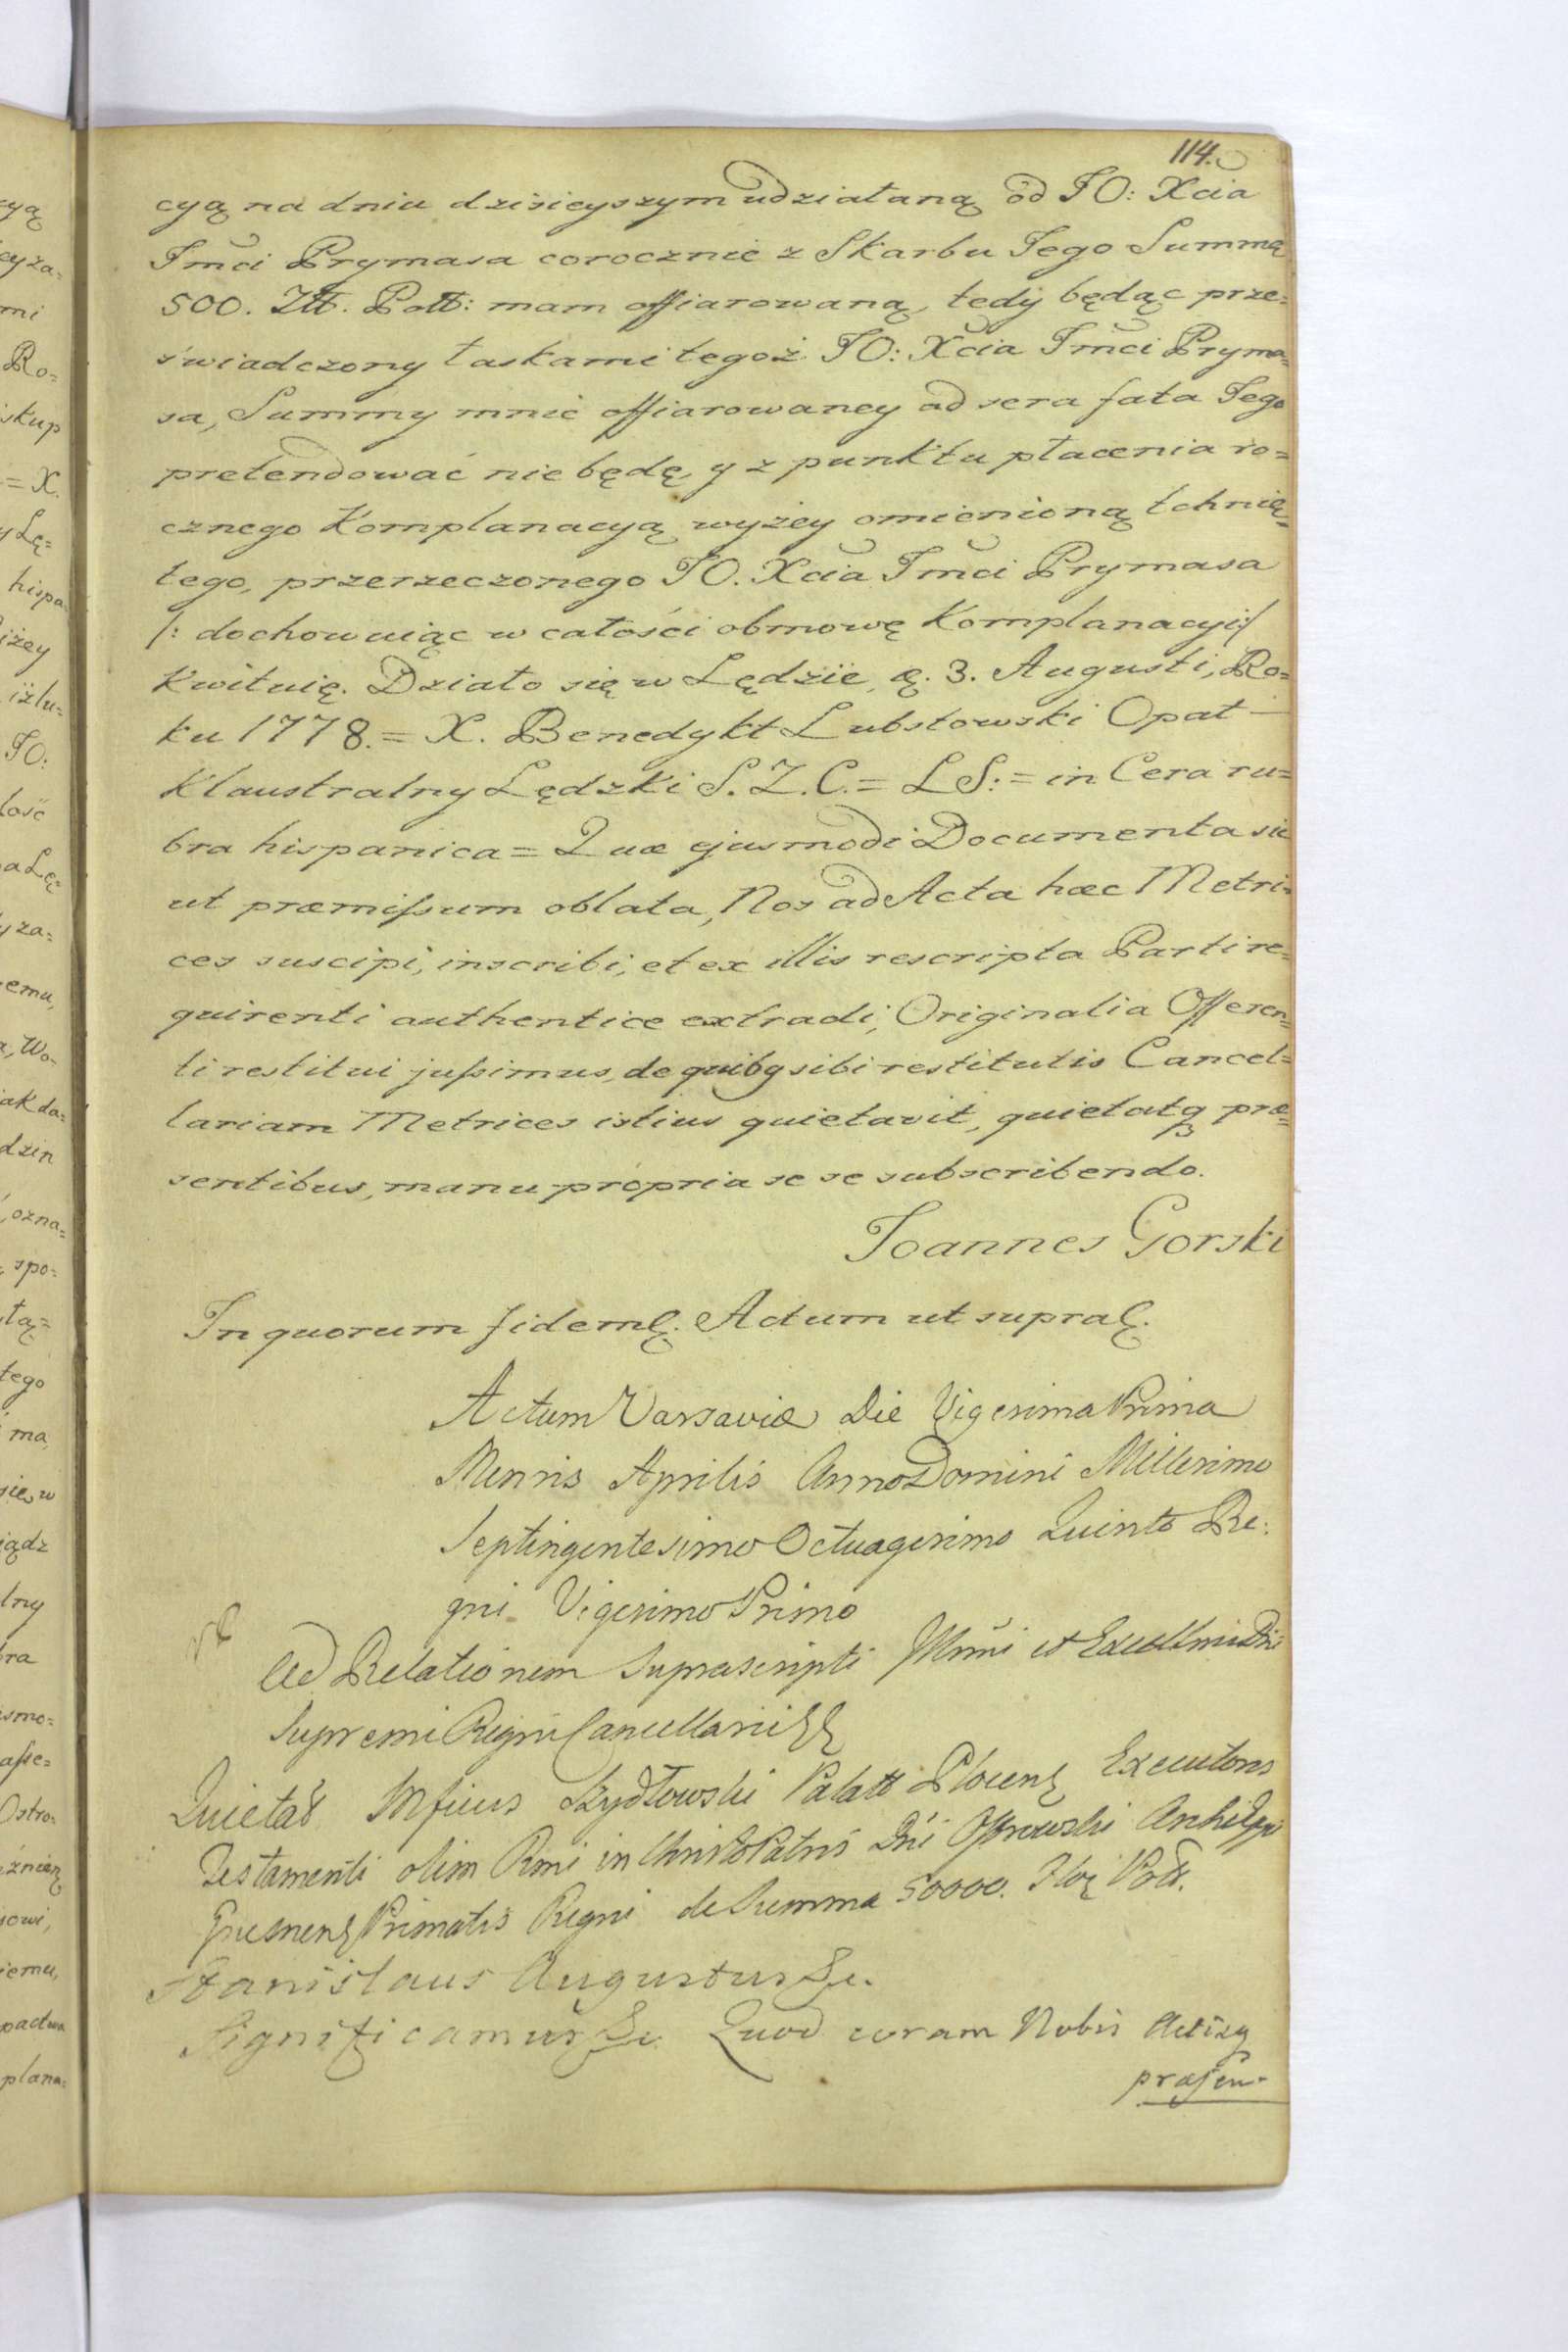 114.
cyą na dniu dzisieyszym udziałaną od JO: Xcia
Jmći Prymasa corocznie z Skarbu Jego Summą
500. Złł. Poll: mam offiarowaną, tedy będąc prze=
świadczony łaskami tegoż JO: Xcia Jmći Pryma=
sa, Summy mnie offiarowaney ad sera fata Jego
pretendować nie będę, y z punktu płacenia ro=
cznego Komplanacyą wyżey omienioną tchnię=
tego, przerzeczonego JO. Xcia Jmći Prymasa
/: dochowuiąc w całości obmowę Komplanacyi:/
Kwituię. Działo się w Lędzie, ę. 3. Augusti, Ro=
ku 1778. = X. Benedykt Lubstowski Opat
Klaustralny Lędzki S. Z. C. = LS: = in Cera ru=
bra hispanica = Quæ ejusmodi Documenta sic
ut præmissum oblata, Nos ad Acta hæc Metri=
ces suscipi, inscribi, et ex illis rescripta Parti re=
quirenti authentice extradi, Originalia Offeren=
ti restitui jussimus, de quibq sibi restitutis Cancel=
lariam Metrices istius quietavit, quietatq præ=
sentibus, manu propria se se subscribendo.
Joannes Gorski
In quorum fidem ę. Actum ut supra ę.
Actum Varsaviæ Die Vigesima Prima
Mensis Aprilis Anno Domini Millesimo
Septingentesimo Octuagesimo Quinto Re:
gni Vigesimo Primo
Ad Relationem Suprascripti Illmi et Excellmi Dni
Supremi Regni Cancellarii
Quietat Mficus Szydłowski Palatt Plocens Executores
Testamenti olim Rmi in Christo Patris Dni Ostrowski Archieppi
Gnesnens Primatis Regni de Summa 50000. Flor Poll.
Stanislaus Augustus &c.
Significamus &c Quod coram Nobis Actisq
præsen-